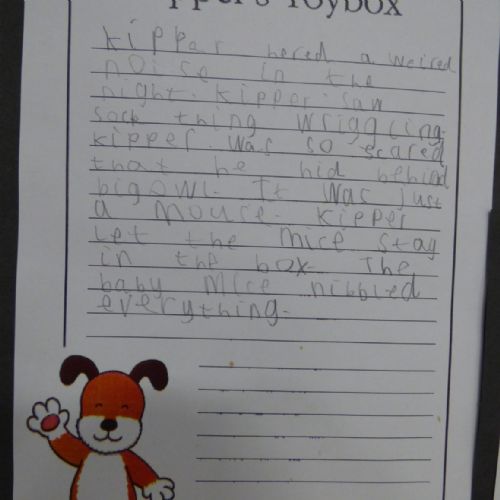 Toybox
kipper hered a weired
noise in the
night. kipper. saw
sock thing wriggling.
kipper. was so scared
that he hid behind
bigowl. It was just
a mouse. kipper
let the mice stay
in the box. The
baby mice nibbled
everything.